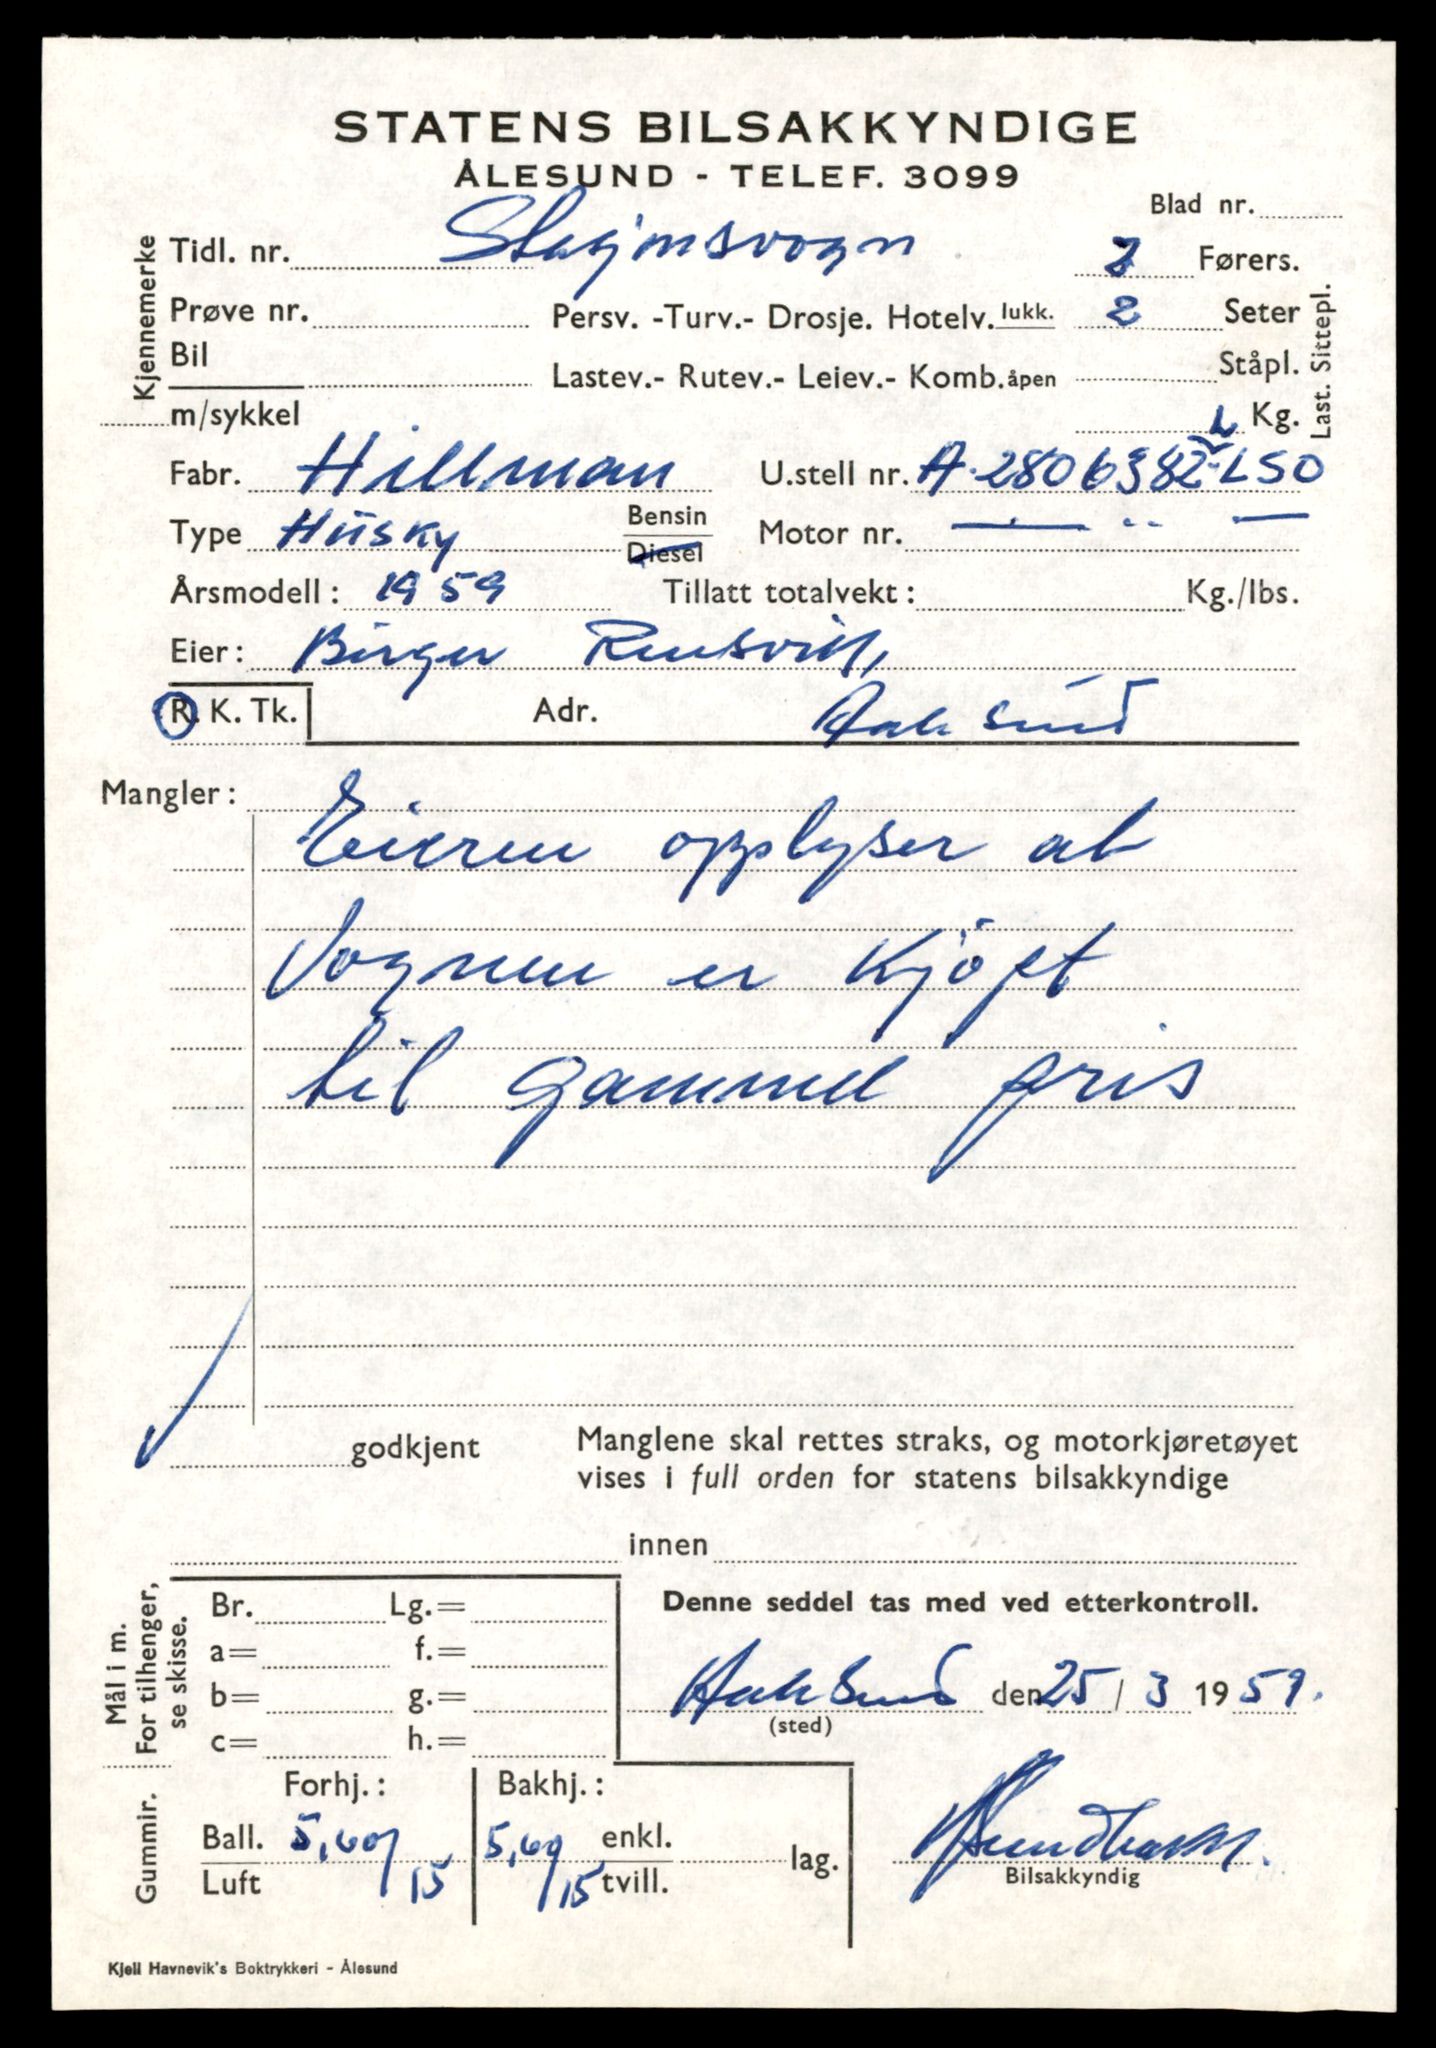 STATENS BILSAKKYNDIGE
ÅLESUND - TELEF. 3099
Blad nr.
Kjennemerke
Tidl. nr. Stasjonsvogn 2 Førers.
Prøve nr. Persv. -Turv.- Drosje. Hotelv. lukk. 2 Seter
Bil
Lastev.- Rutev.- Leiev.- Komb. åpen Ståpl.
m/sykkel Kg.
Last. Sittepl.
Fabr. Hillman U.stell nr. A 2806382 LSO
Type Husky Bensin Diesel Motor nr.
Årsmodell: 1959 Tillatt totalvekt: Kg./lbs.
Eier: Birger
R. K. Tk. Adr. Aalesund
Mangler:
Eieren opplyser at
Vognen er kjöpt
til gammel pris
godkjent Manglene skal rettes straks, og motorkjøretøyet
vises i full orden for statens bilsakkyndige
innen
Mål i m.
For tilhenger,
se skisse.
Br. Lg.=
a= f.=
b= g.=
c= h.=
Denne seddel tas med ved etterkontroll.
Aalesund den 25/3 1959.
(sted)
Gummir.
Forhj.: Bakhj.:
Ball. 5,60/15 5,60/15 enkl.
Luft tvill. lag.
Bilsakkyndig
Kjell Havnevik's Boktrykkeri - Ålesund